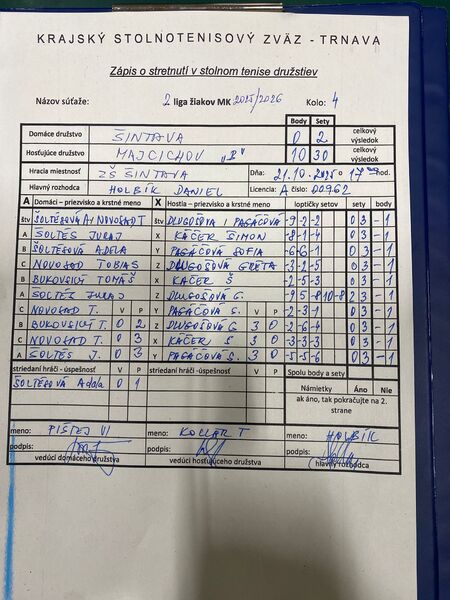 KRAJSKÝ STOLNOTENISOVÝ ZVÄZ - TRNAVA
Zápis o stretnutí v stolnom tenise družstiev
Názov súťaže: 2 liga žiakov MK 2025/2026 Kolo: 4
Body Sety
Domáce družstvo ŠINTAVA 0 2 celkový výsledok
Hosťujúce družstvo MAJCICHOV "B" 10 30 celkový výsledok
Hracia miestnosť ZŠ ŠINTAVA Dňa: 21.10.2025 o 17 hod.
Hlavný rozhodca HOLBÍK DANIEL Licencia A číslo: 00962
A Domáci – priezvisko a krstné meno X Hostia – priezvisko a krstné meno loptičky setov sety body
štv ŠOLTÉSOVÁ A, NOVOSAD T štv DLUGOŠOVÁ, PAGÁČOVÁ -9 -2 -2 0 3 -1
A ŠOLTÉS JURAJ X KÁČER ŠIMON -8 -1 -4 0 3 -1
B ŠOLTÉSOVÁ ADELA Y PAGÁČOVÁ SOFIA -6 -6 -1 0 3 -1
C NOVOSAD TOBIAS Z DLUGOŠOVÁ GRÉTA -3 -2 -1 0 3 -1
B BUKOVSKÝ TOMÁŠ X KÁČER Š -2 -5 0 3 -1
A ŠOLTÉS JURAJ Z DLUGOŠOVÁ G. -9 5 -8 10 -8 2 3 -1
C NOVOSAD T. V P Y PAGÁČOVÁ S. V P -2 -3 -1 0 3 -1
B BUKOVSKÝ T. 0 2 Z DLUGOŠOVÁ G 3 0 -2 -6 -4 0 3 -1
C NOVOSAD T. 0 3 X KÁČER Š 3 0 -3 -3 -3 0 3 -1
A ŠOLTÉS J. 0 3 Y PAGÁČOVÁ S. 3 0 -5 -5 -6 0 3 -1
striedaní hráči -úspešnosť V P striedaní hráči -úspešnosť V P Spolu body a sety:
ŠOLTÉSOVÁ Adela 0 1 Námietky Áno Nie
ak áno, tak pokračujte na 2. strane
meno: PIŠTEJ VI meno: KOLLÁR T meno: HOLBÍK
podpis: podpis: podpis:
vedúci domáceho družstva vedúci hosťujúceho družstva hlavný rozhodca